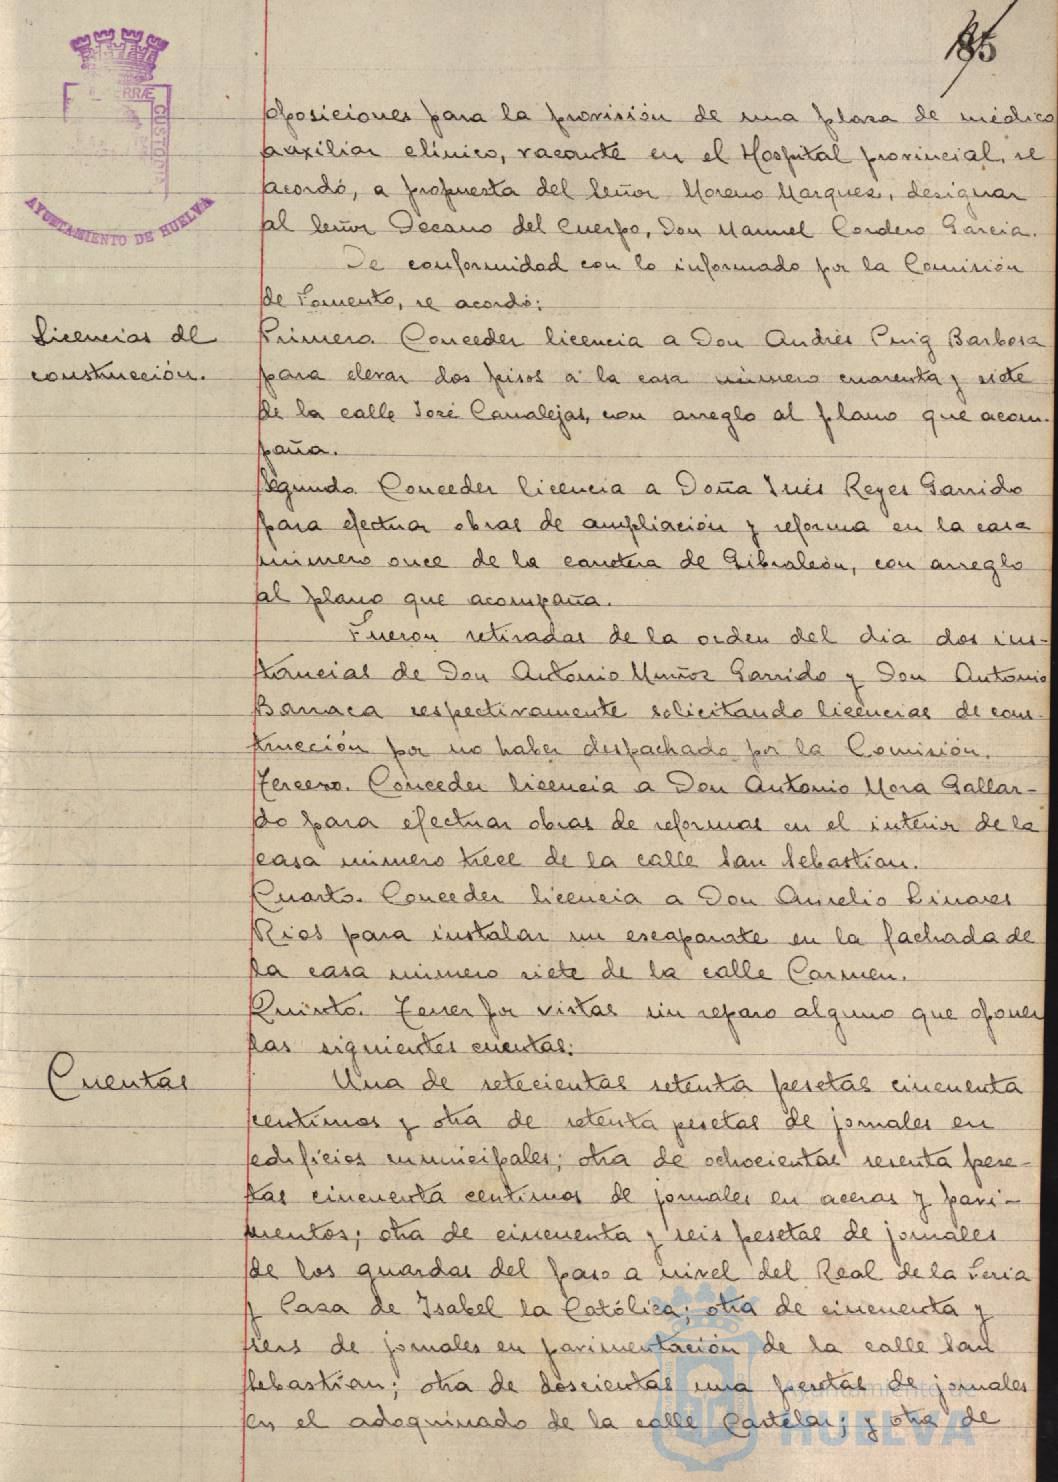 185
oposiciones para la provisión de una plaza de médico
auxiliar clínico, vacante en el Hospital provincial, se
acordó, a propuesta del Señor Moreno Marquez, designar
al Señor Decano del Cuerpo, Don Manuel Cordero Garcia.
De conformidad con lo informado por la Comisión
de Fomento, se acordó:
Licencias de
construcción.
Primero. Conceder licencia a Don Andrés Puig Barbosa
para elevar dos pisos a la casa número cuarenta y siete
de la calle José Canalejas, con arreglo al plano que acom-
paña.
Segundo. Conceder licencia a Doña Inés Reyes Garrido
para efectuar obras de ampliación y reforma en la casa
número once de la carretera de Gibraleón, con arreglo
al plano que acompaña.
Fueron retiradas de la orden del dia dos ins-
tancias de Don Antonio Muñoz Garrido y Don Antonio
Barraca respectivamente solicitando licencias de cons-
trucción por no haber despachado por la Comisión.
Tercero. Conceder licencia a Don Antonio Mora Gallar-
do para efectuar obras de reformas en el interior de la
casa número trece de la calle San Sebastian.
Cuarto. Conceder licencia a Don Aurelio Linares
Rios para instalar un escaparate en la fachada de
la casa número siete de la calle Carmen.
Quinto. Tener por vistas sin reparo alguno que oponer
las siguientes cuentas:
Cuentas
Una de setecientas setenta pesetas cincuenta
centimos y otra de setenta pesetas de jornales en
edificios municipales; otra de ochocientas sesenta pese-
tas cincuenta centimos de jornales en aceras y pavi-
mentos; otra de cincuenta y seis pesetas de jornales
de los guardas del paso a nivel del Real de la Feria
y Casa de Isabel la Católica; otra de cincuenta y
seis de jornales en pavimentación de la calle San
Sebastian; otra de doscientas una pesetas de jornales
en el adoquinado de la calle Castelar; y otra de
CUSTODIA
AYUNTAMIENTO DE HUELVA
Ayuntamiento de
HUELVA